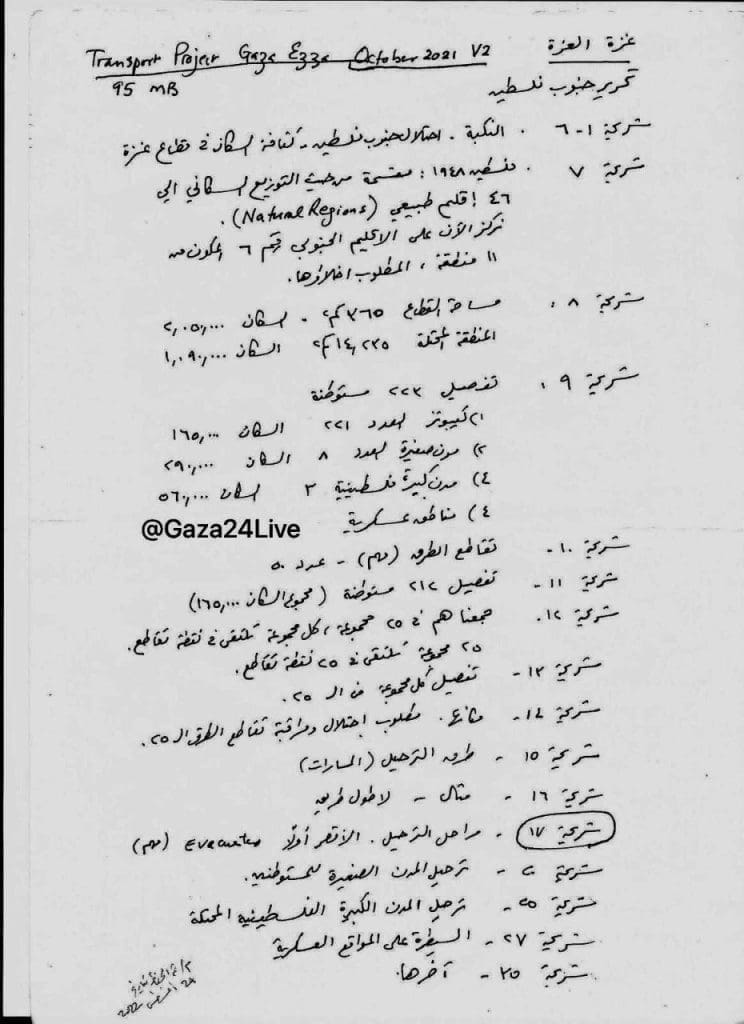 غزة العزة
Transport Project Gaza Ezza October 2021 V2
95 MB
تحرير جنوب فلسطين
شريحة ١-٦ . النكبة . احتلال جنوب فلسطين - كثافة السكان في قطاع غزة
شريحة ٧ . فلسطين ١٩٤٨ : مقسمة من حيث التوزيع السكاني الى
٤٦ إقليم طبيعي (Natural Regions).
نركز الآن على الاقليم الجنوبي رقم ٦ المكون من
١١ منطقة ، المطلوب اخلاؤها.
شريحة ٨ : مساحة القطاع ٣٦٥ كم٢ . السكان ٢,٠٥٠,٠٠٠
المنطقة المحتلة ١٤,٢٣٥ كم٢ السكان ١,٠٩٠,٠٠٠
شريحة ٩ : تفصيل ٢٢٣ مستوطنة
١) كيبوتز العدد ٢٢١ السكان ١٦٥,٠٠٠
٢) مدن صغيرة العدد ٨ السكان ٢٩٠,٠٠٠
٤) مدن كبيرة فلسطينية ٣ السكان ٥٦٠,٠٠٠
٤) مناطق عسكرية
@Gaza24Live
شريحة ١٠- تقاطع الطرق (مهم) - عدد ٥٠
شريحة ١١- تفصيل ٢١٢ مستوطنة (مجموع السكان ١٦٥,٠٠٠)
شريحة ١٢. جمعناهم في ٢٥ مجموعة ، كل مجموعة تلتقى في نقطة تقاطع.
٢٥ مجموعة تلتقى في ٢٥ نقطة تقاطع.
شريحة ١٣- تفصيل كل مجموعة من الـ ٢٥.
شريحة ١٤- مكانها. مطلوب احتلال ومراقبة تقاطع الطرق الـ ٢٥.
شريحة ١٥ - طرق الترحيل (المسارات)
شريحة ١٦ - مثال - لاطول طريق
شريحة ١٧ - مراحل الترحيل . الأقصر أولاً Evacuates (مهم)
شريحة ٢٠ - ترحيل المدن الصغيرة للمستوطنين.
شريحة ٢٥- ترحيل المدن الكبيرة الفلسطينية المحتلة
شريحة ٢٧ - السيطرة على المواقع العسكرية
شريحة ٣٥ - آخرها.